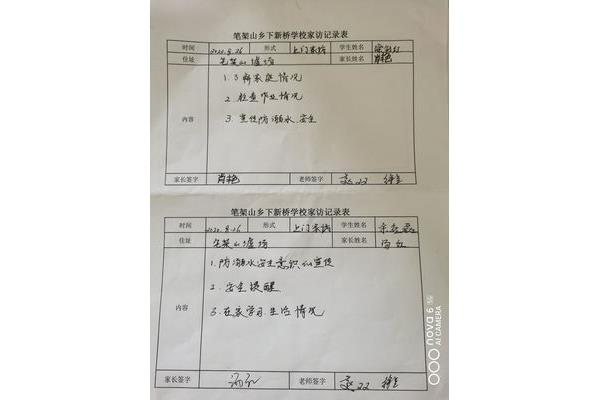 笔架山乡下新桥学校家访记录表
时间 2020.8.26 形式 上门家访 学生姓名
住址 笔架山墟场 家长姓名 肖艳
1. 了解家庭情况
2. 检查作业情况
内容 3. 宣传防溺水.安全
家长签字 肖艳 老师签字
笔架山乡下新桥学校家访记录表
时间 2020.8.26 形式 上门家访 学生姓名
住址 笔架山墟场 家长姓名
1. 防溺水安全意识的宣传
2. 安全提醒
内容 3. 在家学习.生活情况
家长签字 老师签字
nova 6 5G
AI CAMERA